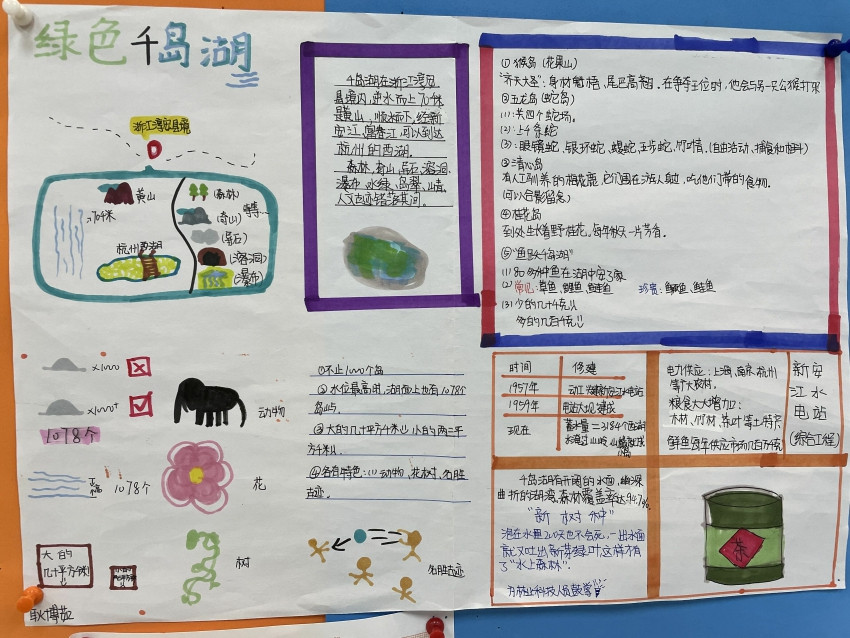 绿色千岛湖
浙江淳安县境
黄山
>70千米
杭州西湖
(森林)
(奇山)
等等...
(异石)
(溶洞)
(瀑布)
千岛湖在浙江淳安
县境内,逆水而上70千米
是黄山,顺流而下,经新
安江、富春江,可以到达
杭州的西湖。
森林,奇山,异石,溶洞,
瀑布,水绿、岛翠、山青,
人文古迹错落其间。
① 猴岛(花果山)
"齐天大圣":身材魁梧、尾巴高翘。在争夺王位时,他会与另一只公猴打架
② 五龙岛(蛇岛)
(1):共四个蛇场。
(2):上千条蛇
(3):眼镜蛇、银环蛇、蝮蛇、五步蛇、竹叶青。(自由活动、捕食和栖息)
③ 清心岛
有人工驯养的梅花鹿,它们围在游人身边,吃他们带的食物。
(可以合影留念)
④ 桂花岛
到处生长着野桂花。每年秋天一片芳香。
⑤ "鱼跃千岛湖"
(1) 80多种鱼在湖中安了家
(2) 常见:草鱼、鲤鱼、鲢鱼 珍贵:鳜鱼、鲑鱼
(3) 少的几十千克
多的几百千克!!
×1000
×1000+
1078个
1078个
大的
几十平方千米
动物
花
树
名胜古迹
①不止1000个岛
②水位最高时,湖面上也有1078个
岛屿。
③大的几十平方千米,小的两三平
方千米。
④各有特色:(1)动物,花树,名胜
古迹。
时间 修建
1957年 动工兴建新安江水电站
1959年 电站大坝建成
现在 蓄水量=3184个西湖
电力供应:上海、南京、杭州
等个大城市。
粮食大大增加:
木材、竹材、茶叶等土特产
鲜鱼每年供应市场几百万千克
新安
江水
电站
(综合工程)
千岛湖有开阔的水面,幽深
曲折的湖湾,森林覆盖率达94.7%。
"新树种"
泡在水里200天也不会死,一出水面
就又吐出新芽绿叶,这样才有
了"水上森林"。
为林业科技人员鼓掌!
茶
耿博茹